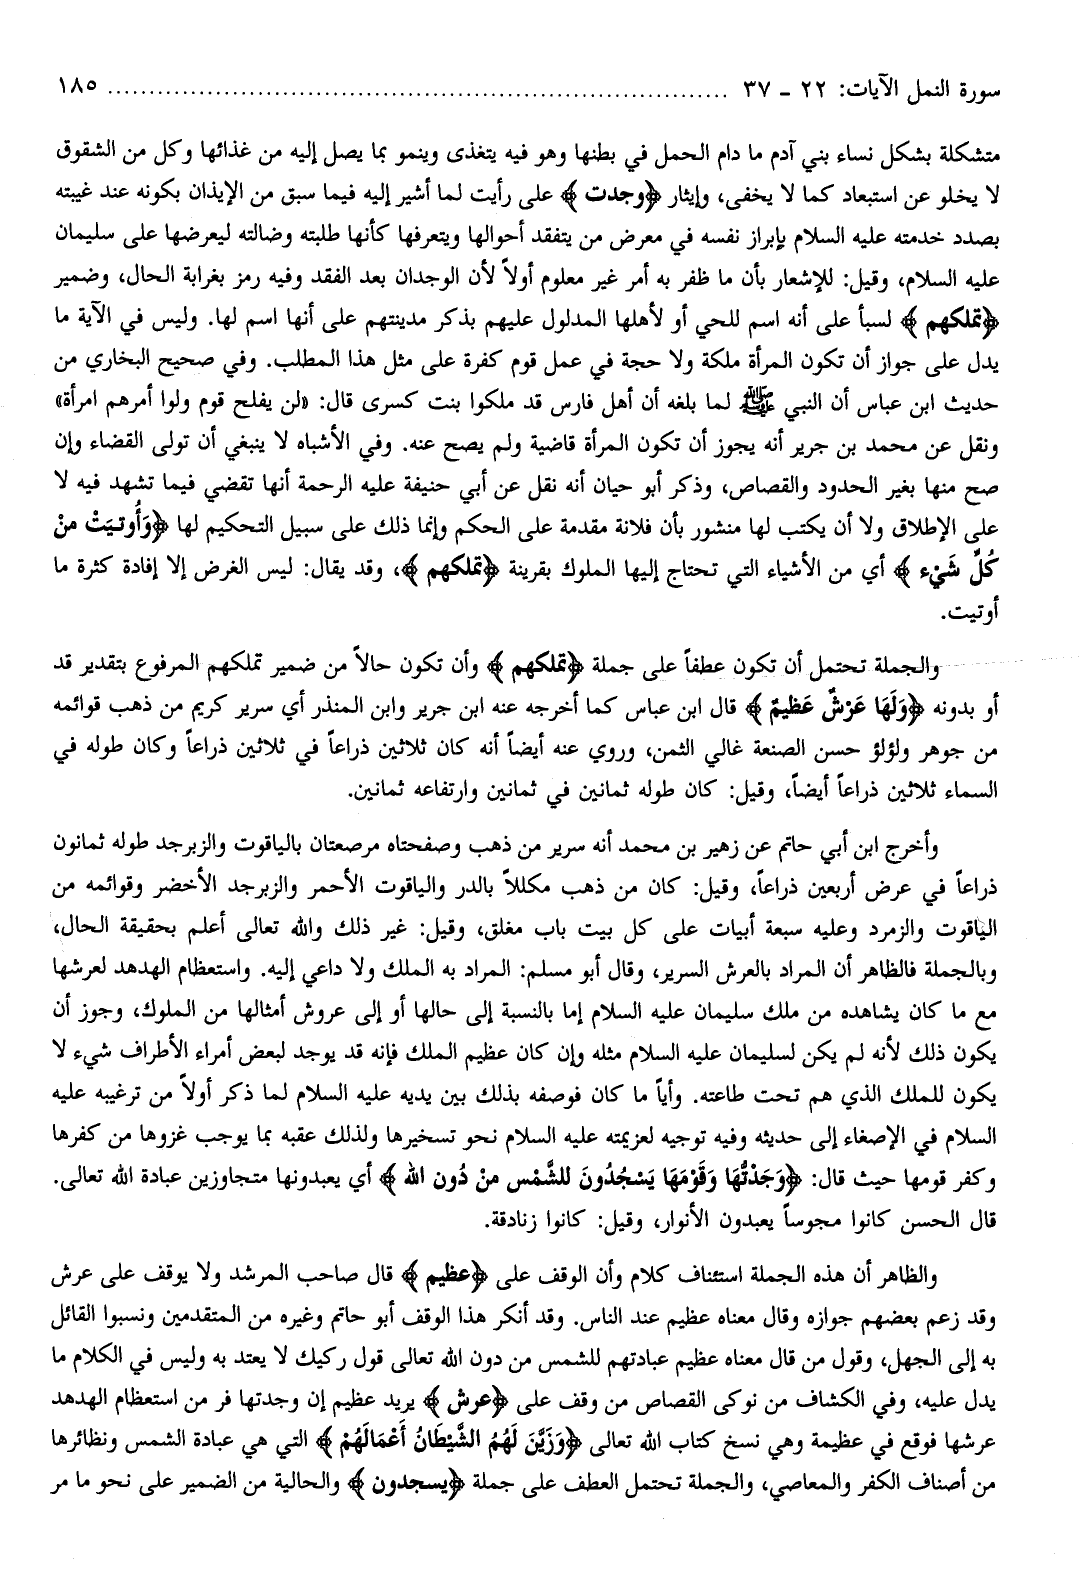 سورة النمل الآيات: ٢٢ - ٣٧ ........................................................................ ١٨٥
متشكلة بشكل نساء بني آدم ما دام الحمل في بطنها وهو فيه يتغذى وينمو بما يصل إليه من غذائها وكل من الشقوق
لا يخلو عن استبعاد كما لا يخفى، وإيثار ﴿وجدت﴾ على رأيت لما أشير إليه فيما سبق من الإيذان بكونه عند غيبته
بصدد خدمته عليه السلام بإبراز نفسه في معرض من يتفقد أحوالها ويتعرفها كأنها طلبته وضالته ليعرضها على سليمان
عليه السلام، وقيل: للإشعار بأن ما ظفر به أمر غير معلوم أولاً لأن الوجدان بعد الفقد وفيه رمز بغرابة الحال، وضمير
﴿تملكهم﴾ لسبأ على أنه اسم للحي أو لأهلها المدلول عليهم بذكر مدينتهم على أنها اسم لها. وليس في الآية ما
يدل على جواز أن تكون المرأة ملكة ولا حجة في عمل قوم كفرة على مثل هذا المطلب. وفي صحيح البخاري من
حديث ابن عباس أن النبي ﷺ لما بلغه أن أهل فارس قد ملكوا بنت كسرى قال: «لن يفلح قوم ولوا أمرهم امرأة»
ونقل عن محمد بن جرير أنه يجوز أن تكون المرأة قاضية ولم يصح عنه. وفي الأشباه لا ينبغي أن تولى القضاء وإن
صح منها بغير الحدود والقصاص، وذكر أبو حيان أنه نقل عن أبي حنيفة عليه الرحمة أنها تقضي فيما تشهد فيه لا
على الإطلاق ولا أن يكتب لها منشور بأن فلانة مقدمة على الحكم وإنما ذلك على سبيل التحكيم لها ﴿وَأُوتيَتْ منْ
كُلِّ شَيْء﴾ أي من الأشياء التي تحتاج إليها الملوك بقرينة ﴿تملكهم﴾، وقد يقال: ليس الغرض إلا إفادة كثرة ما
أوتيت.
والجملة تحتمل أن تكون عطفاً على جملة ﴿تملكهم﴾ وأن تكون حالاً من ضمير تملكهم المرفوع بتقدير قد
أو بدونه ﴿وَلَهَا عَرْشٌ عَظيمٌ﴾ قال ابن عباس كما أخرجه عنه ابن جرير وابن المنذر أي سرير كريم من ذهب قوائمه
من جوهر ولؤلؤ حسن الصنعة غالي الثمن، وروي عنه أيضاً أنه كان ثلاثين ذراعاً في ثلاثين ذراعاً وكان طوله في
السماء ثلاثين ذراعاً أيضاً، وقيل: كان طوله ثمانين في ثمانين وارتفاعه ثمانين.
وأخرج ابن أبي حاتم عن زهير بن محمد أنه سرير من ذهب وصفحتاه مرصعتان بالياقوت والزبرجد طوله ثمانون
ذراعاً في عرض أربعين ذراعاً، وقيل: كان من ذهب مكللاً بالدر والياقوت الأحمر والزبرجد الأخضر وقوائمه من
الياقوت والزمرد وعليه سبعة أبيات على كل بيت باب مغلق، وقيل: غير ذلك والله تعالى أعلم بحقيقة الحال،
وبالجملة فالظاهر أن المراد بالعرش السرير، وقال أبو مسلم: المراد به الملك ولا داعي إليه. واستعظام الهدهد لعرشها
مع ما كان يشاهده من ملك سليمان عليه السلام إما بالنسبة إلى حالها أو إلى عروش أمثالها من الملوك، وجوز أن
يكون ذلك لأنه لم يكن لسليمان عليه السلام مثله وإن كان عظيم الملك فإنه قد يوجد لبعض أمراء الأطراف شيء لا
يكون للملك الذي هم تحت طاعته. وأياً ما كان فوصفه بذلك بين يديه عليه السلام لما ذكر أولاً من ترغيبه عليه
السلام في الإصغاء إلى حديثه وفيه توجيه لعزيمته عليه السلام نحو تسخيرها ولذلك عقبه بما يوجب غزوها من كفرها
وكفر قومها حيث قال: ﴿وَجَدْتُّهَا وَقَوْمَهَا يَسْجُدُونَ للشَّمْس منْ دُون الله﴾ أي يعبدونها متجاوزين عبادة الله تعالى.
قال الحسن كانوا مجوساً يعبدون الأنوار، وقيل: كانوا زنادقة.
والظاهر أن هذه الجملة استئناف كلام وأن الوقف على ﴿عظيم﴾ قال صاحب المرشد ولا يوقف على عرش
وقد زعم بعضهم جوازه وقال معناه عظيم عند الناس. وقد أنكر هذا الوقف أبو حاتم وغيره من المتقدمين ونسبوا القائل
به إلى الجهل، وقول من قال معناه عظيم عبادتهم للشمس من دون الله تعالى قول ركيك لا يعتد به وليس في الكلام ما
يدل عليه، وفي الكشاف من نوكى القصاص من وقف على ﴿عرش﴾ يريد عظيم إن وجدتها فر من استعظام الهدهد
عرشها فوقع في عظيمة وهي نسخ كتاب الله تعالى ﴿وَزَيَّنَ لَهُمُ الشَّيْطَانُ أَعْمَالَهُمْ﴾ التي هي عبادة الشمس ونظائرها
من أصناف الكفر والمعاصي، والجملة تحتمل العطف على جملة ﴿يسجدون﴾ والحالية من الضمير على نحو ما مر